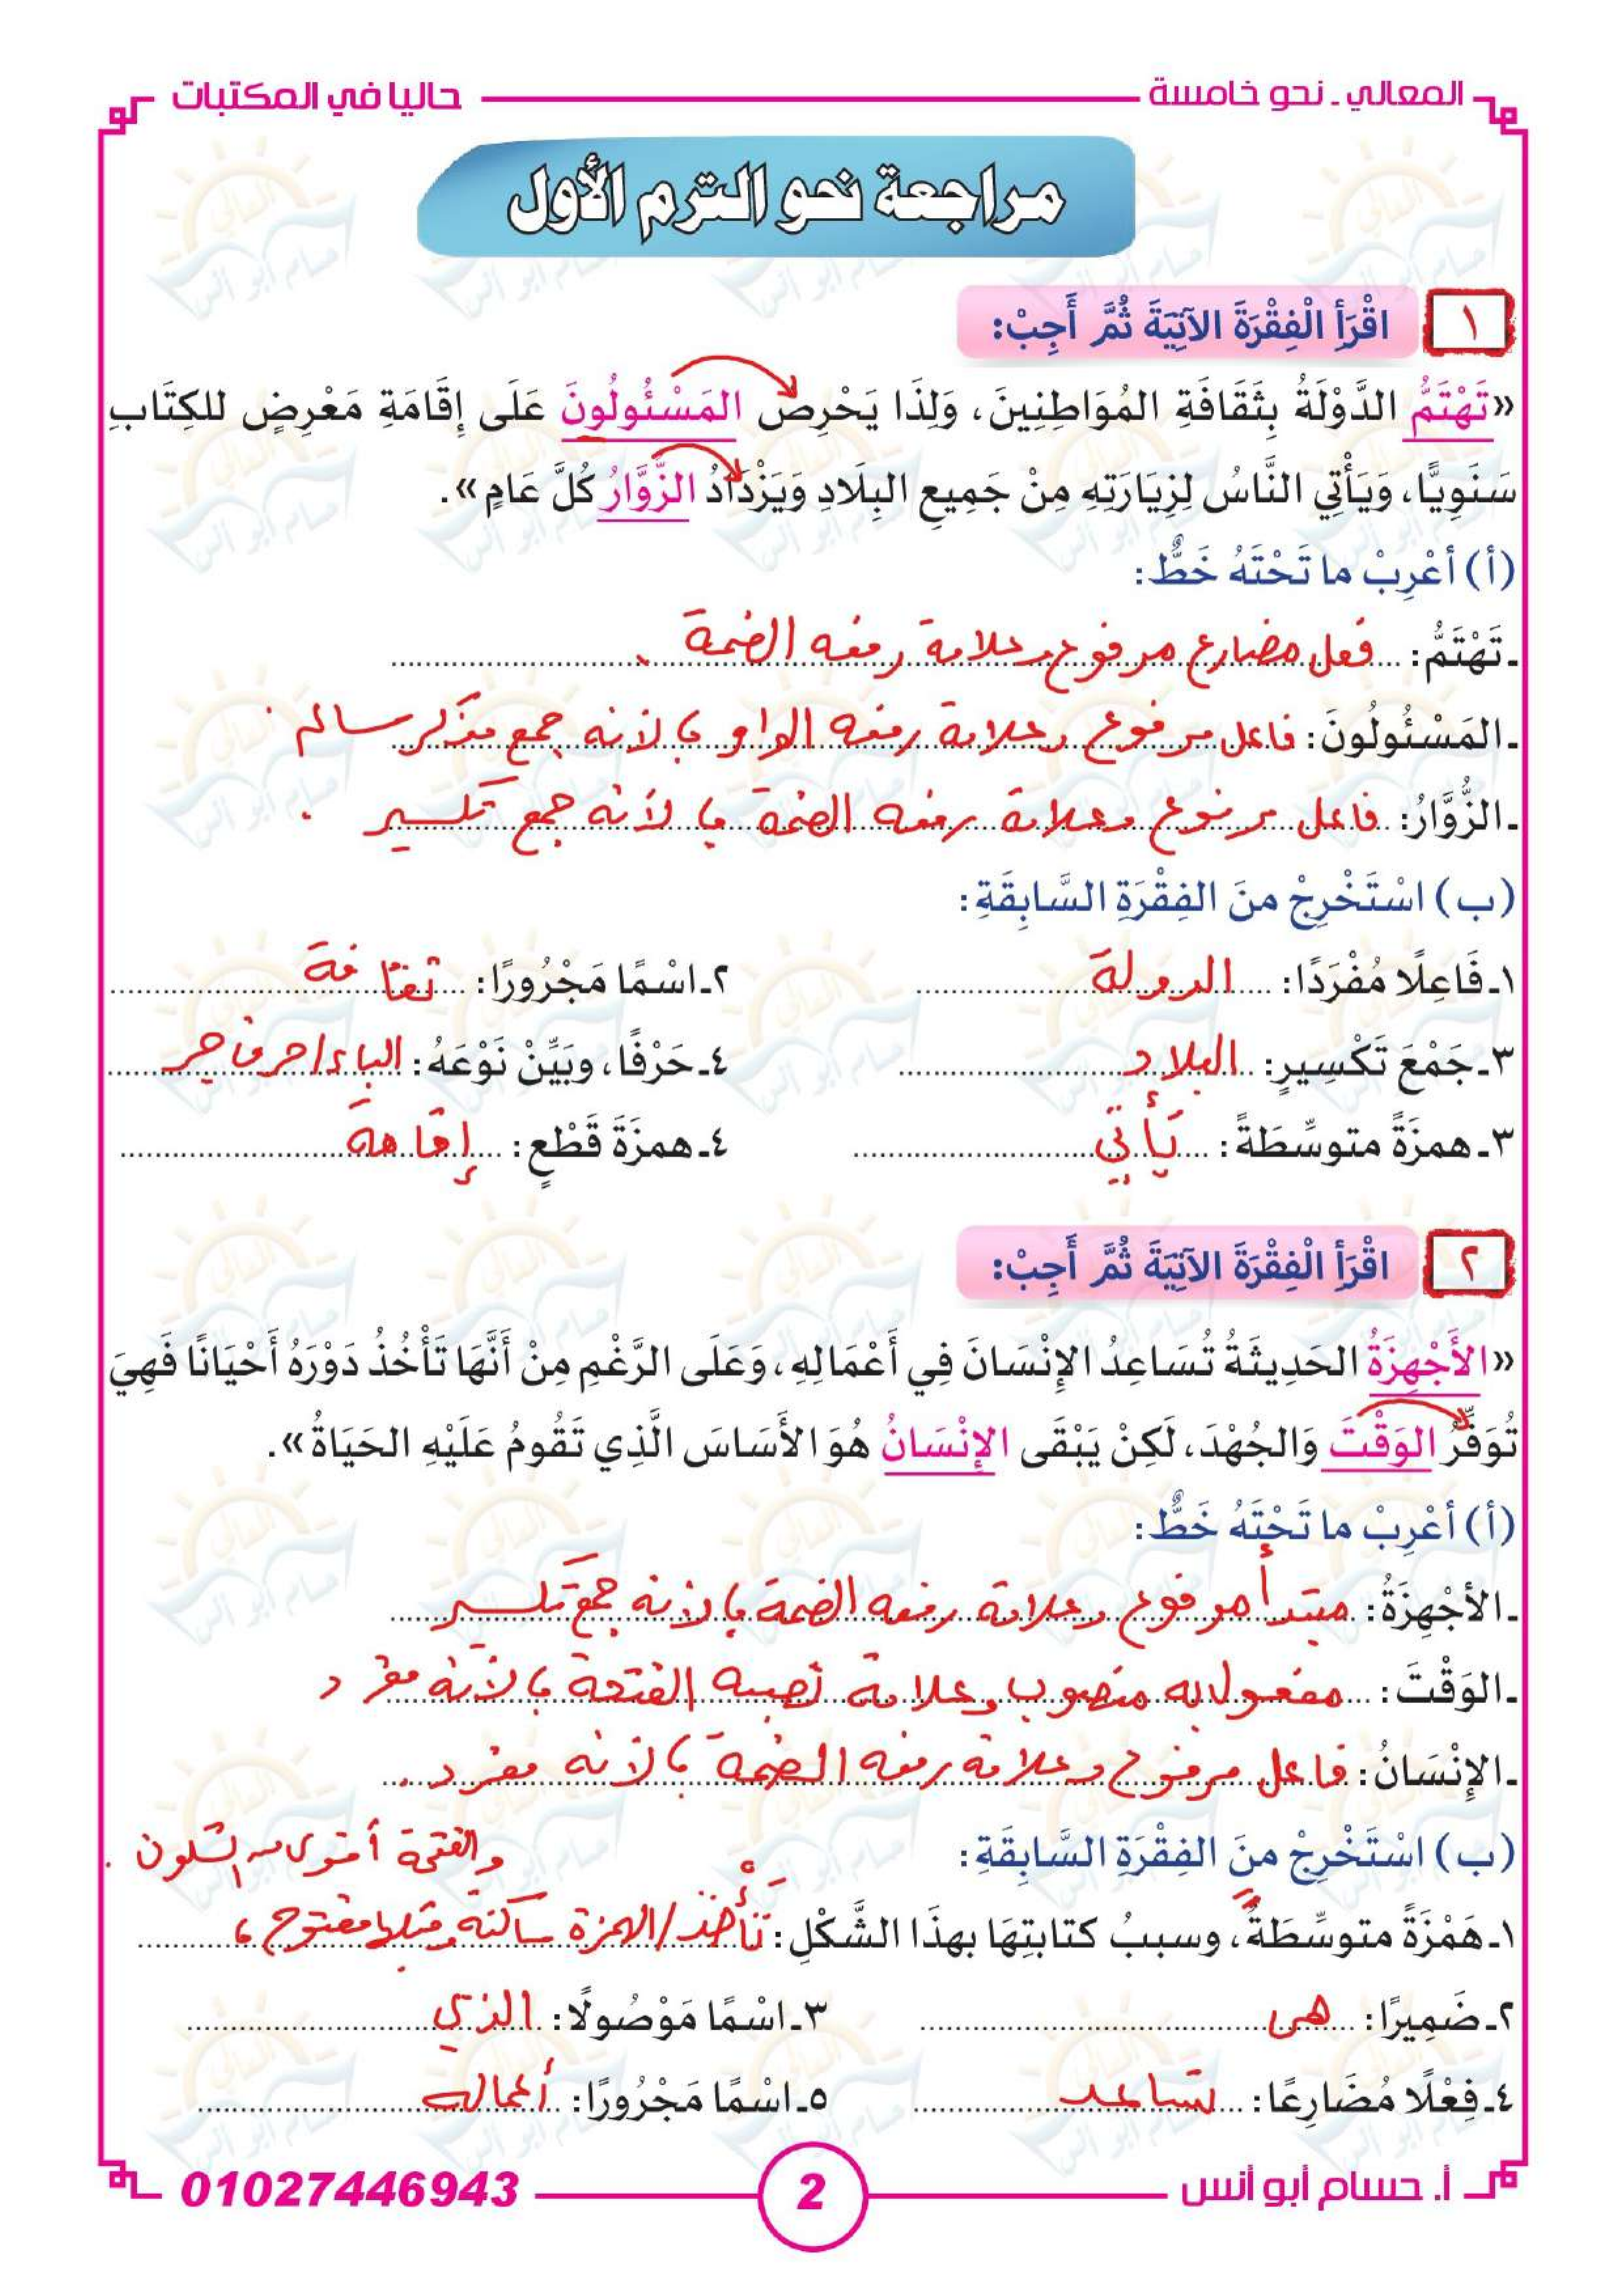 المعالي - نحو خامسة
حاليا في المكتبات
مراجعة نحو الترم الأول
١ اقْرَأ الْفِقْرَةَ الآتِيَةَ ثُمَّ أَجِبْ:
«تَهْتَمُّ الدَّوْلَةُ بِثَقَافَةِ المُوَاطِنِينَ، وَلِذَا يَحْرِصُ المَسْئُولُونَ عَلَى إِقَامَةِ مَعْرِضٍ للكِتَابِ
سَنَوِيًّا، وَيَأْتِي النَّاسُ لِزِيَارَتِهِ مِنْ جَمِيعِ البِلَادِ وَيَزْدَادُ الزُّوَّارُ كُلَّ عَامٍ».
(أ) أعْرِبْ ما تَحْتَهُ خَطٌّ:
ـ تَهْتَمُّ: فعل مضارع مرفوع وعلامة رفعه الضمة.
ـ المَسْئُولُونَ: فاعل مرفوع وعلامة رفعه الواو؛ لأنه جمع مذكر سالم.
ـ الزُّوَّارُ: فاعل مرفوع وعلامة رفعه الضمة؛ لأنه جمع تكسير.
(ب) اسْتَخْرِجْ منَ الفِقْرَةِ السَّابِقَةِ:
١ـ فَاعِلًا مُفْرَدًا: الدولة ٢ـ اسْمًا مَجْرُورًا: ثقافة
٣ـ جَمْعَ تَكْسِيرٍ: البلاد ٤ـ حَرْفًا، وبَيِّنْ نَوْعَهُ: الباء/حرف جر
٣ـ همزَةً متوسِّطَةً: يَأتي ٤ـ همزَةَ قَطْعٍ: إقامة
٢ اقْرَأ الْفِقْرَةَ الآتِيَةَ ثُمَّ أَجِبْ:
«الأَجْهِزَةُ الحَدِيثَةُ تُسَاعِدُ الإِنْسَانَ فِي أَعْمَالِهِ، وَعَلَى الرَّغْمِ مِنْ أَنَّهَا تَأْخُذُ دَوْرَهُ أَحْيَانًا فَهِيَ
تُوَفِّرُ الوَقْتَ وَالجُهْدَ، لَكِنْ يَبْقَى الإِنْسَانُ هُوَ الأَسَاسَ الَّذِي تَقُومُ عَلَيْهِ الحَيَاةُ».
(أ) أعْرِبْ ما تَحْتَهُ خَطٌّ:
ـ الأجْهِزَةُ: مبتدأ مرفوع وعلامة رفعه الضمة؛ لأنه جمع تكسير
ـ الوَقْتَ: مفعول به منصوب وعلامة نصبه الفتحة؛ لأنه مفرد
ـ الإنْسَانُ: فاعل مرفوع وعلامة رفعه الضمة؛ لأنه مفرد.
(ب) اسْتَخْرِجْ منَ الفِقْرَةِ السَّابِقَةِ:
١ـ هَمْزَةً متوسِّطَةً، وسببُ كتابتِهَا بهذَا الشَّكْلِ: تَأْخذ/الهمزة ساكنة وقبلها مفتوح،
والفتحة أقوى من السكون.
٢ـ ضَمِيرًا: هى ٣ـ اسْمًا مَوْصُولًا: الذي
٤ـ فِعْلًا مُضَارِعًا: تساعد ٥ـ اسْمًا مَجْرُورًا: أعماله
أ. حسام أبو أنس
2
01027446943